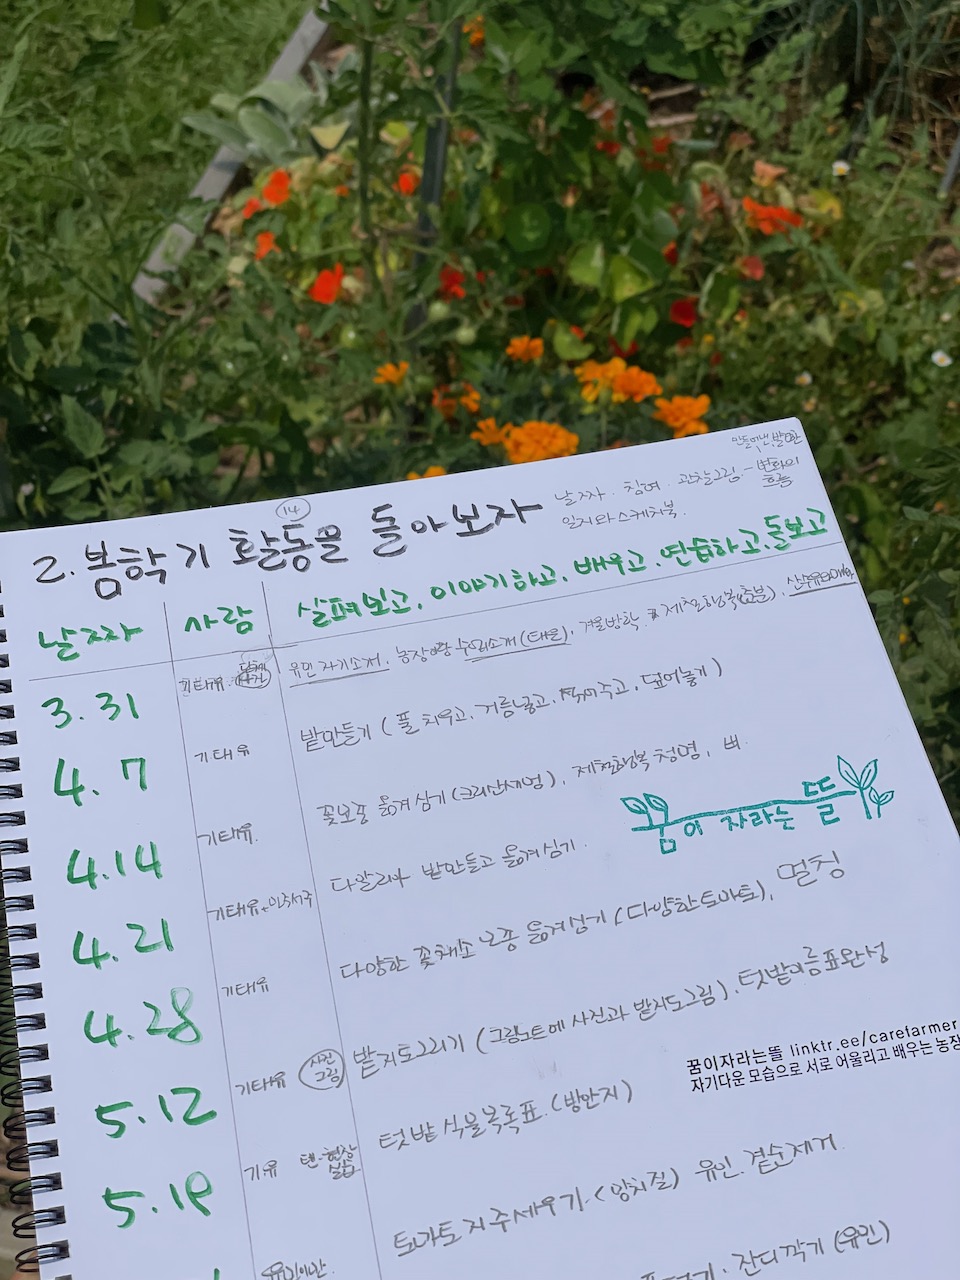 만들어낸, 발견한
날짜, 참여, 관찰그림 - 변화의 흐름
일지와 스케치북.
14
2. 봄학기 활동을 돌아보자
날짜 사람 살펴보고, 이야기하고, 배우고, 연습하고, 돌보고
3. 31 기태유. 유민 자기소개, 농장이랑 수리소개(태은), 겨울방학, 제철행복(춘분),
4. 7 기태유 밭만들기 (풀 치우고, 거름넣고, 섞어주고, 덮어놓기)
4. 14 기태유. 꽃모종 옮겨심기(크리산세멈), 제철행복 청명, 비
꿈이 자라는 뜰
4. 21 기태유+민주서국 다알리아 밭만들고 옮겨심기.
4. 28 기태유 다양한 꽃채소 모종 옮겨심기 (다양한토마토), 멀칭
5. 12 기태유 사진 그림 밭지도그리기 (그림노트에 사진과 밭지도그림), 텃밭이름표완성
꿈이자라는뜰 linktr.ee/carefarmer
자기다운 모습으로 서로 어울리고 배우는 농장
5. 19 기유 태-현장실습 텃밭 식물목록표. (방안지)
유민이만. 토마토지주세우기. (망치질) 유인. 곁순제거.
잔디깎기 (유민)